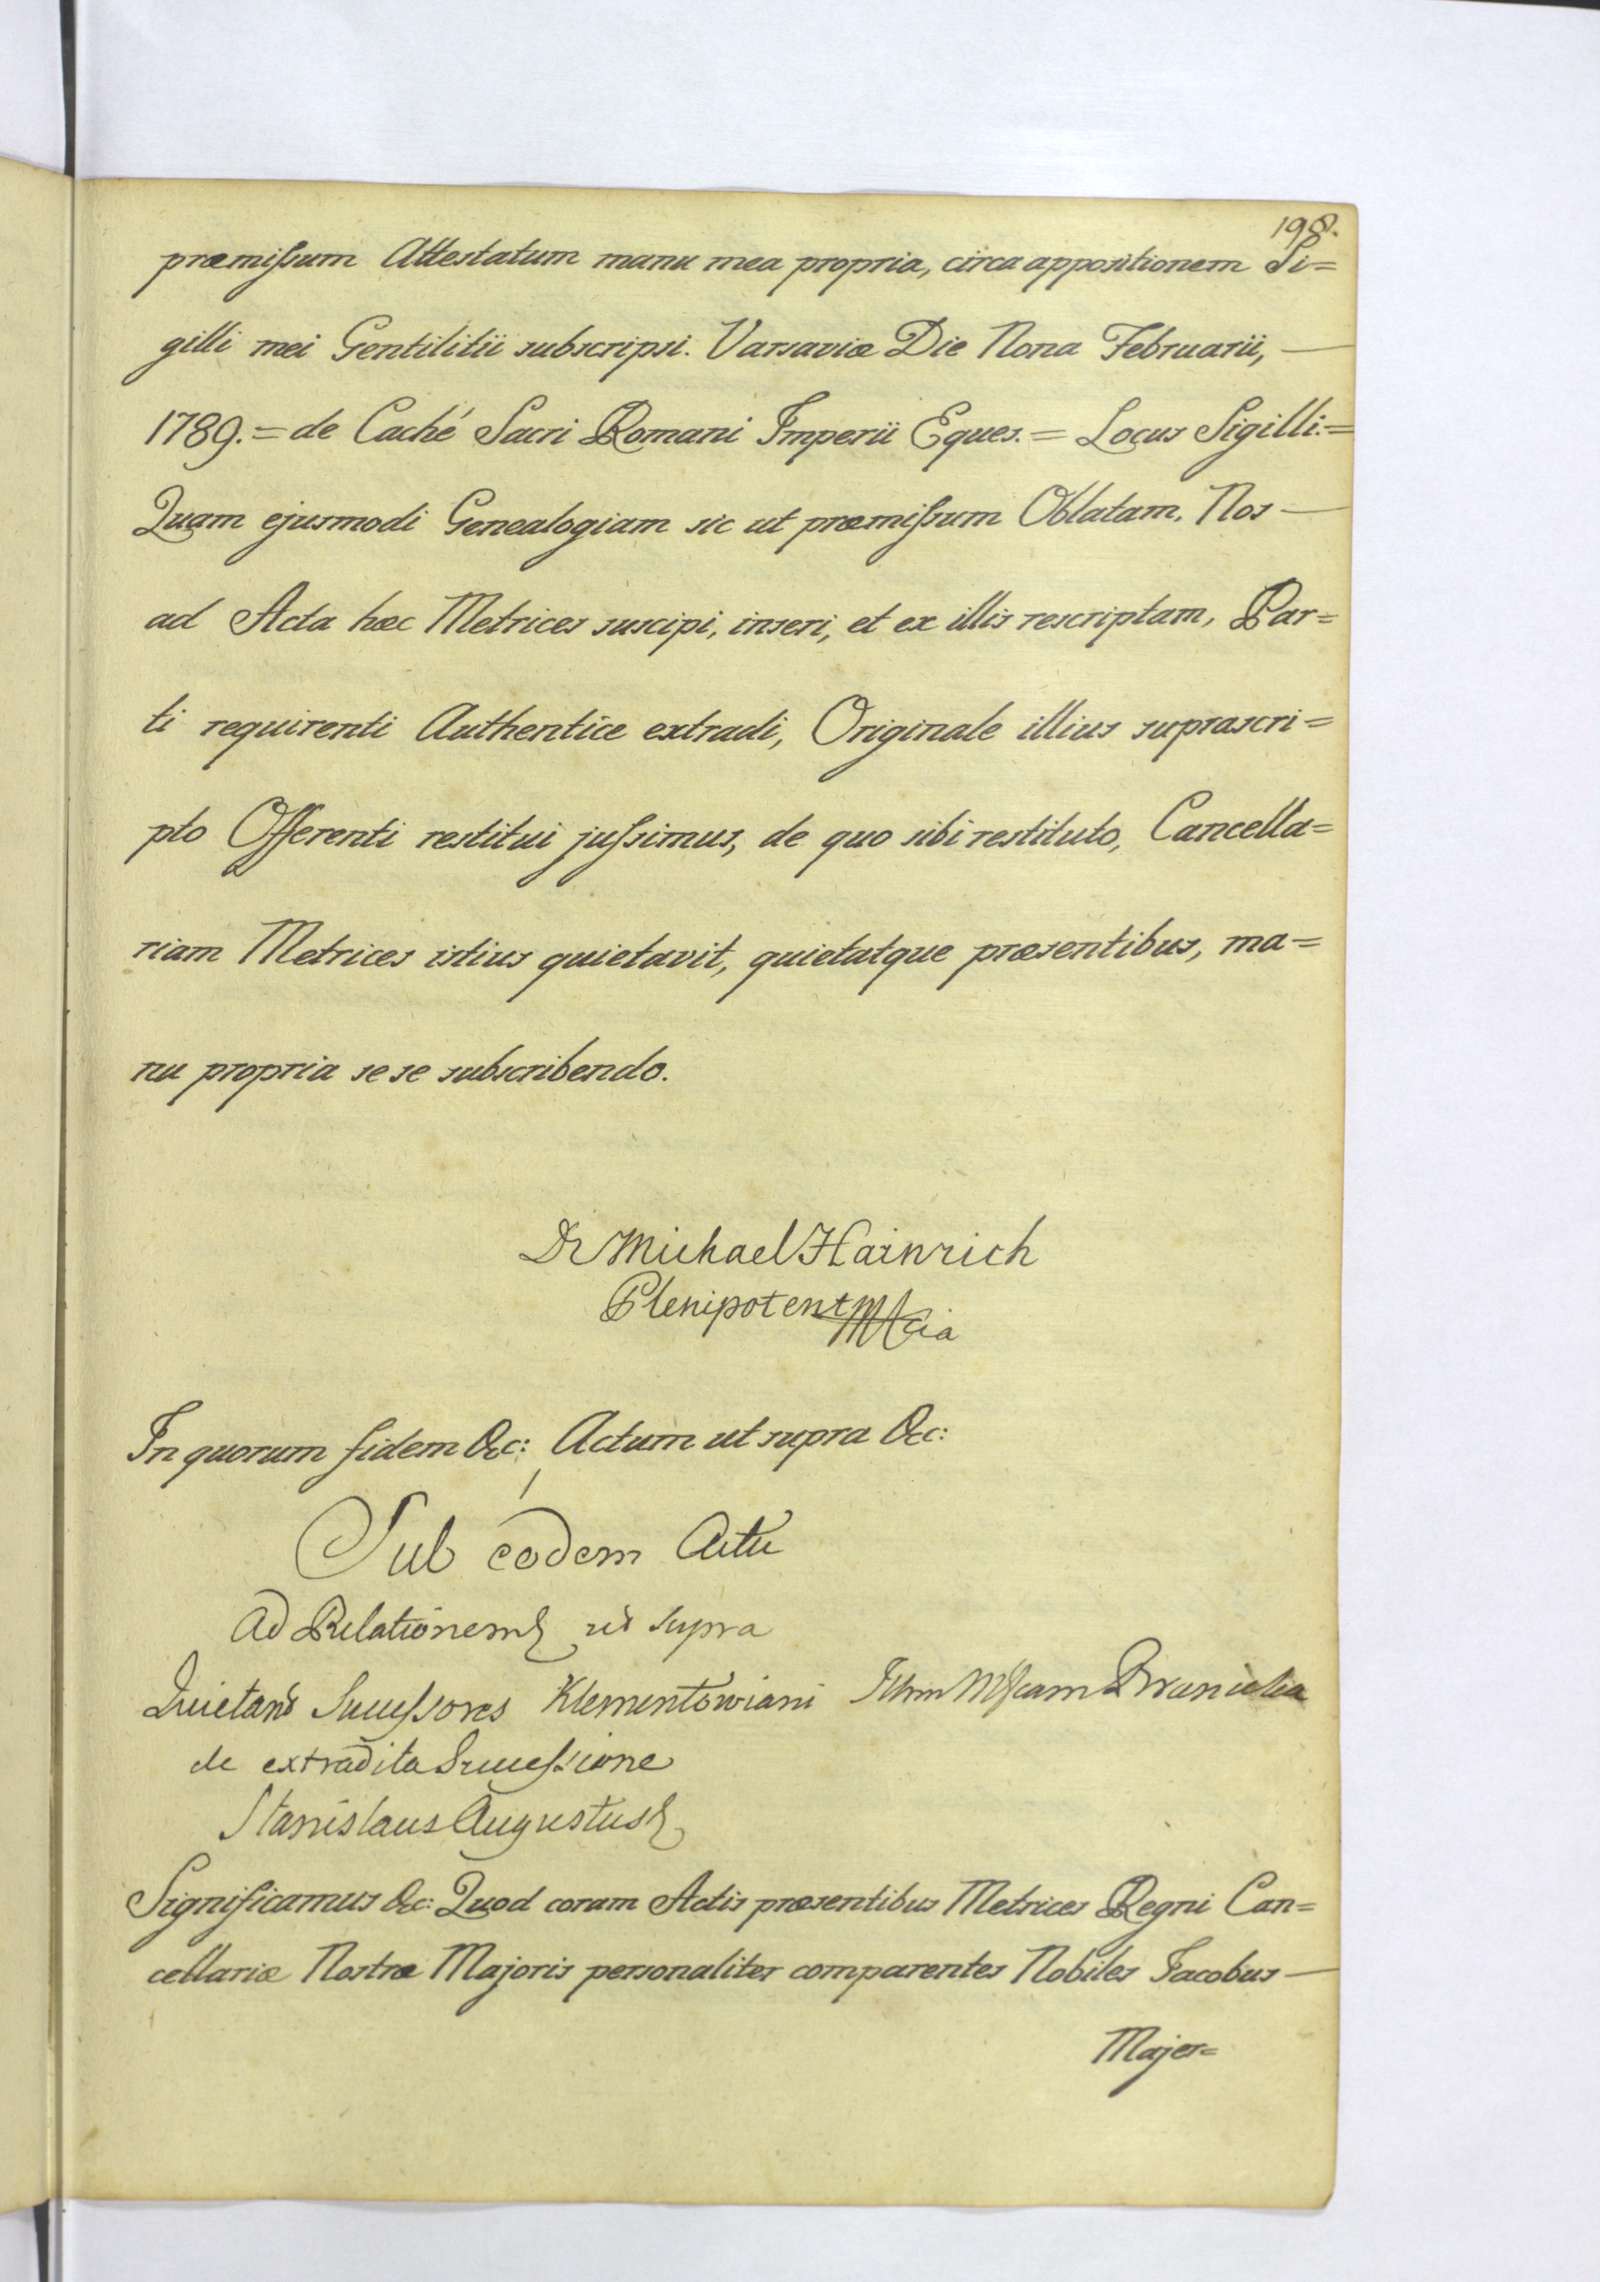 198.
præmiſsum Attestatum manu mea propria, circa appositionem Si=
gilli mei Gentilitii subscripsi. Varsaviæ Die Nona Februarii, —
1789. = de Caché Sacri Romani Imperii Eques. = Locus Sigilli. =
Quam ejusmodi Genealogiam sic ut præmiſsum Oblatam, Nos —
ad Acta hæc Metrices suscipi, inseri, et ex illis rescriptam, Par=
ti requirenti Authentice extradi, Originale illius suprascri=
pto Offerenti restitui juſsimus, de quo sibi restituto, Cancella=
riam Metrices istius quietavit, quietatque præsentibus, ma=
nu propria se se subscribendo.
Dr Michael Hainrich
Plenipotent
In quorum fidem &c: Actum ut supra &c:
Sub eodem Actu
Ad Relationem ut supra
Quietant Succeſsores Klementowiani
de extradita Succeſsione
Stanislaus Augustus
Significamus &c: Quod coram Actis præsentibus Metrices Regni Can=
cellariæ Nostræ Majoris personaliter comparentes Nobiles Jacobus —
Majer=